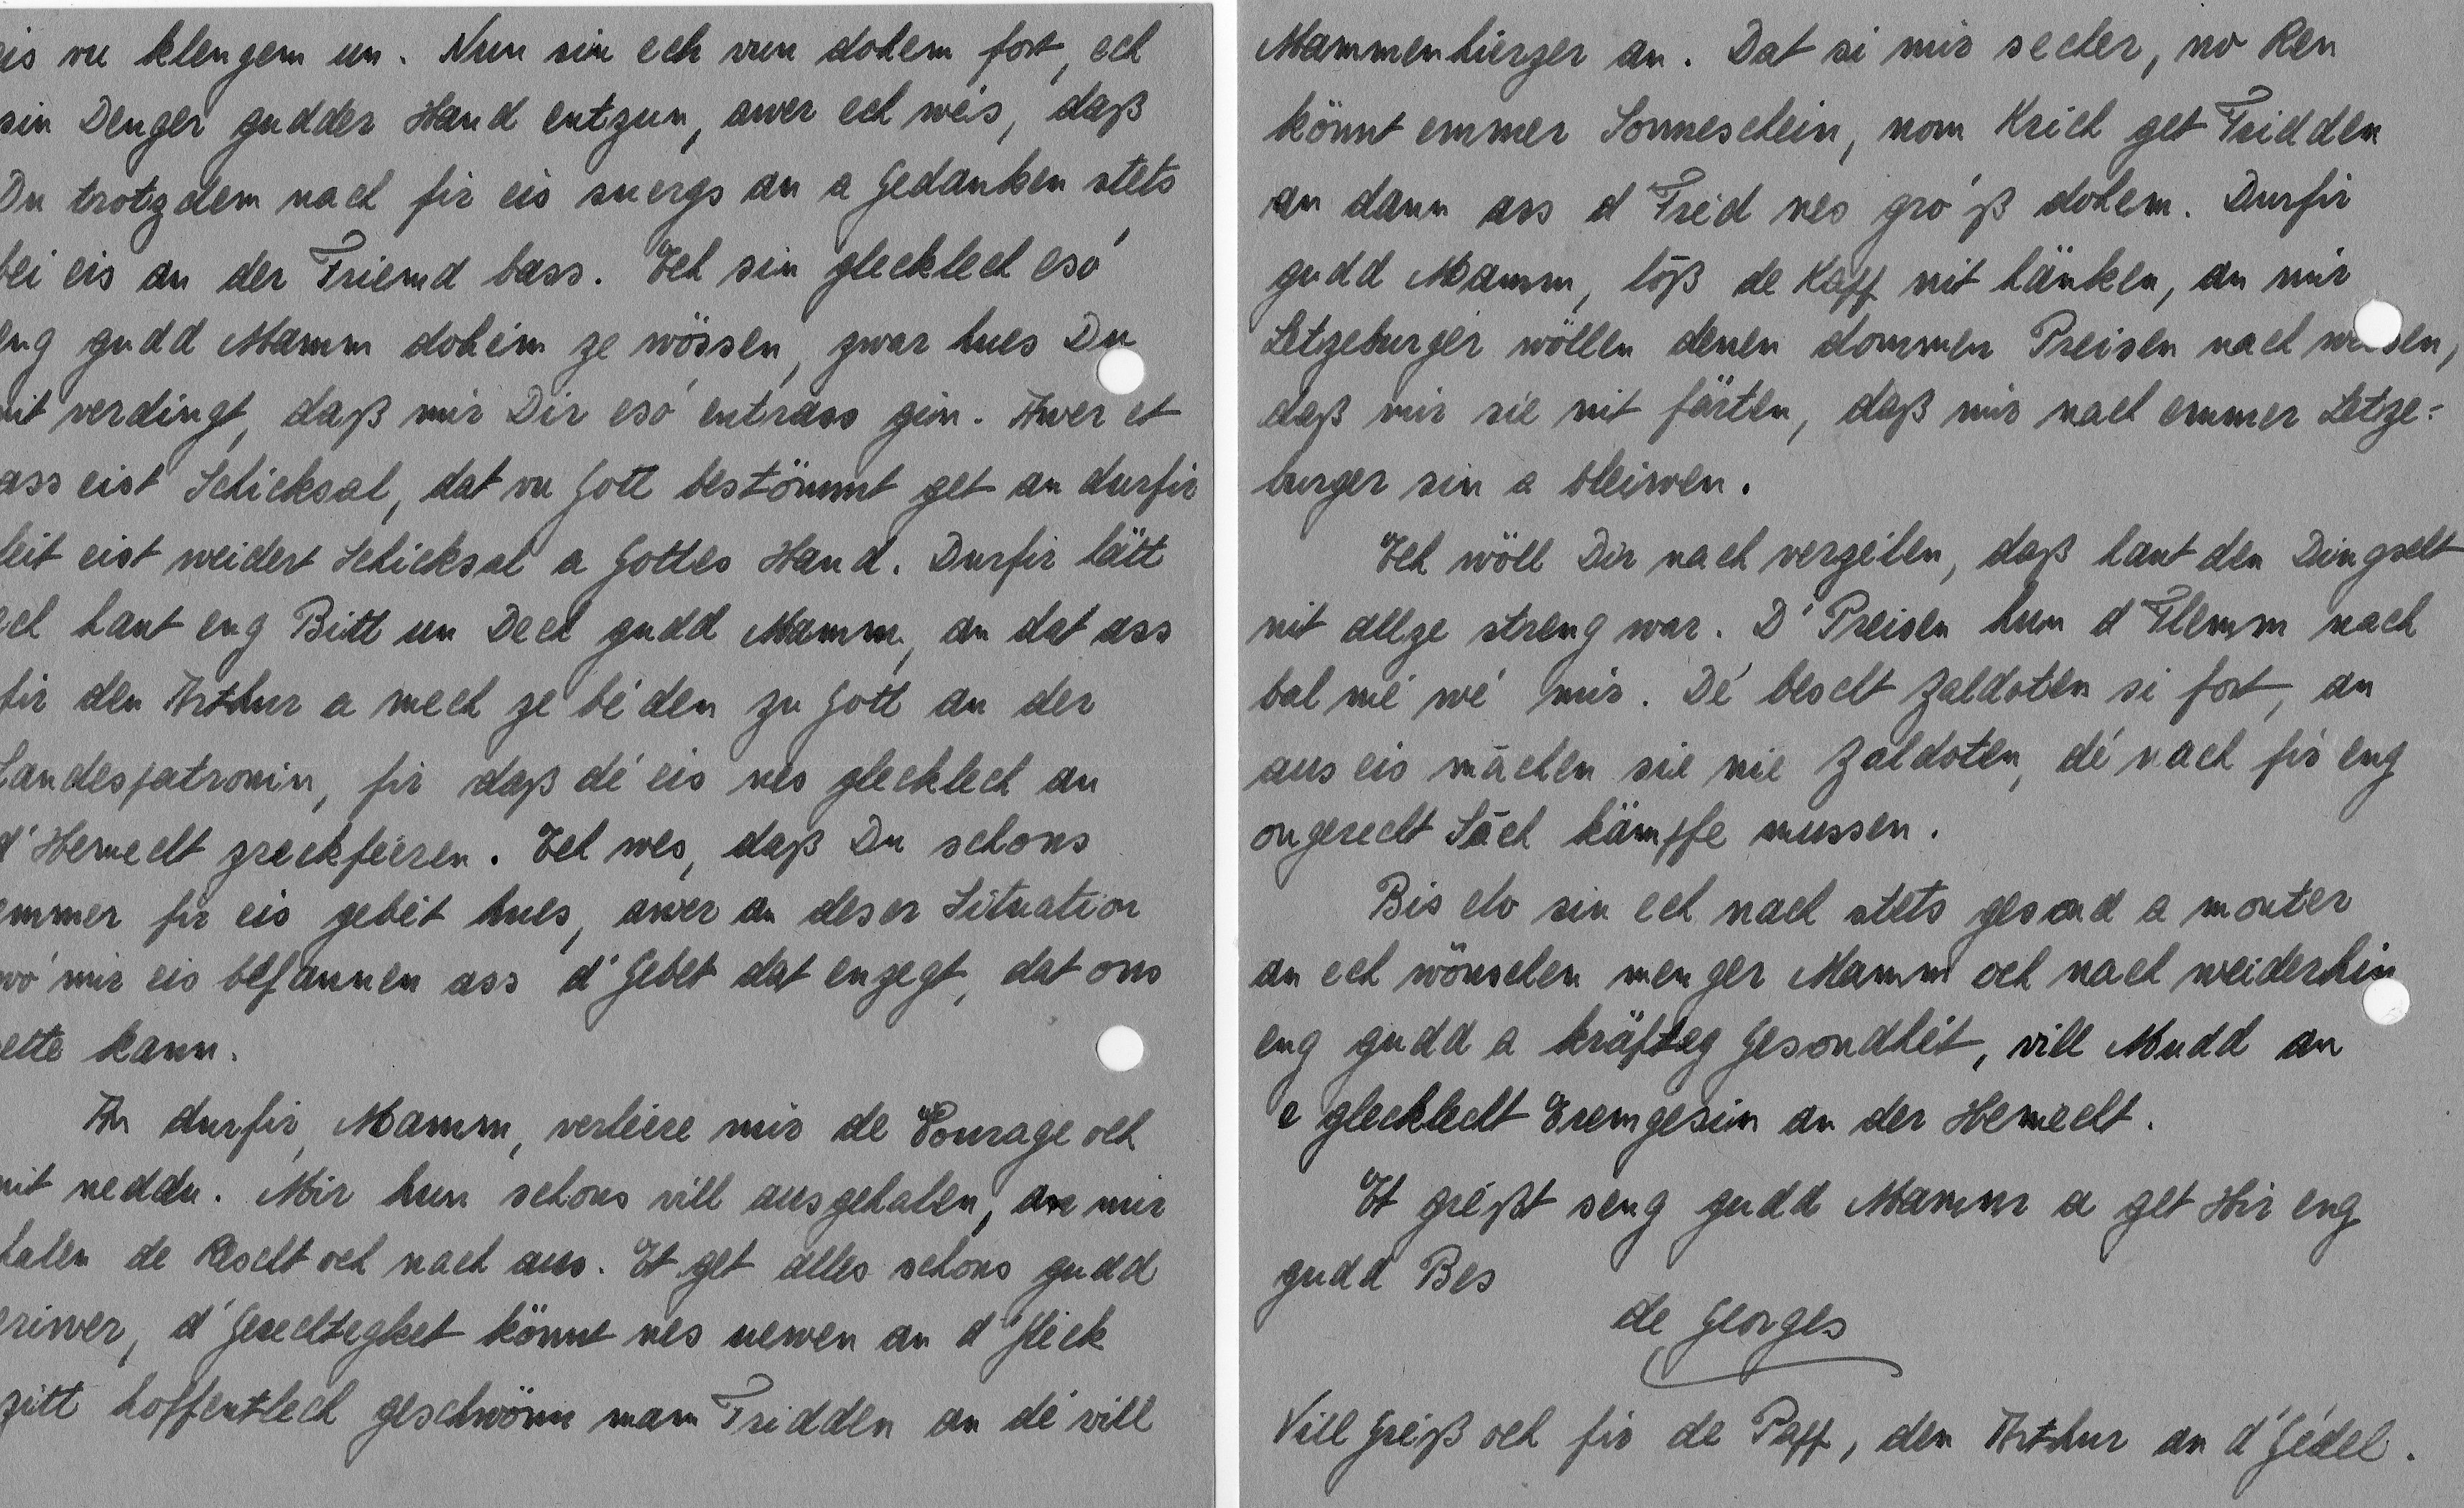 eis vu klengem un. Nun sin ech vun dohem fort, ech
sin Denger gudder Hand entzun, awer ech wés, daß
Du trotzdem nach fir eis suergs an a Gedanken stets
bei eis an der Friemd bass. Ech sin glecklech esó
eng gudd Mamm doheim ze wössen, zwar hues Du
nit verdingt, daß mir Dir esó entrass gin. Awer et
ass eist Schicksal, dat vu Gott bestömmt get an durfir
leit eist weidert Schicksal a Gottes Hand. Durfir hätt
ech haut eng Bitt un Dech gudd Mamm, an dat ass
fir den Arthur a mech ze béiden zu Gott an der
Landespatronin, fir daß dé eis nes glecklech an
d'Hemecht zreckféeren. Ech wes, daß Du schons
emmer fir eis gebét hues, awer an deser Situation
wó mir eis befannen ass d'Gebet dat enzegt, dat ons
rette kann.
An durfir, Mamm, verléiere mir de Courage och
nit neddu. Mir hun schons vill ausgehalen, an mir
halen de Rescht och nach aus. Et get alles schons gudd
eriwer, d'Gerechtegket könnt nes uewen an d'Gléck
zitt hoffentlech geschwönn mam Fridden an dé vill
Mammenhierzer an. Dat si mir secher, no Ren
könnt emmer Sonneschein, nom Krich get Fridden
an dann ass d'Fréd nes gró'ß dohem. Durfir
gudd Mamm, lōß de Kapp nit hänken, an mir
Letzeburger wöllen denen dommen Preisen nach weisen,
daß mir sie nit färten, daß mir nach emmer Letze-
burger sin a bleiwen.
Ech wöll Dir nach verzeilen, daß haut den Dingscht
nit allze streng war. D'Preisen hun d'Flemm nach
bal mé wé mir. Dé bescht Zaldoten si fort, an
aus eis māchen sie nie Zaldoten, dé nach fir eng
ongerecht Sāch kämpfe mussen.
Bis elo sin ech nach stets gesond a monter
an ech wönschen menger Mamm och nach weiderhin
eng gudd a kräfteg Gesondhét, vill Mudd an
e glecklecht Eremgesin an der Hemecht.
Et gréßt seng gudd Mamm a get Hir eng
gudd Bes
de Georges
Vill Gréß och fir de Papp, den Arthur an d'Gédel.